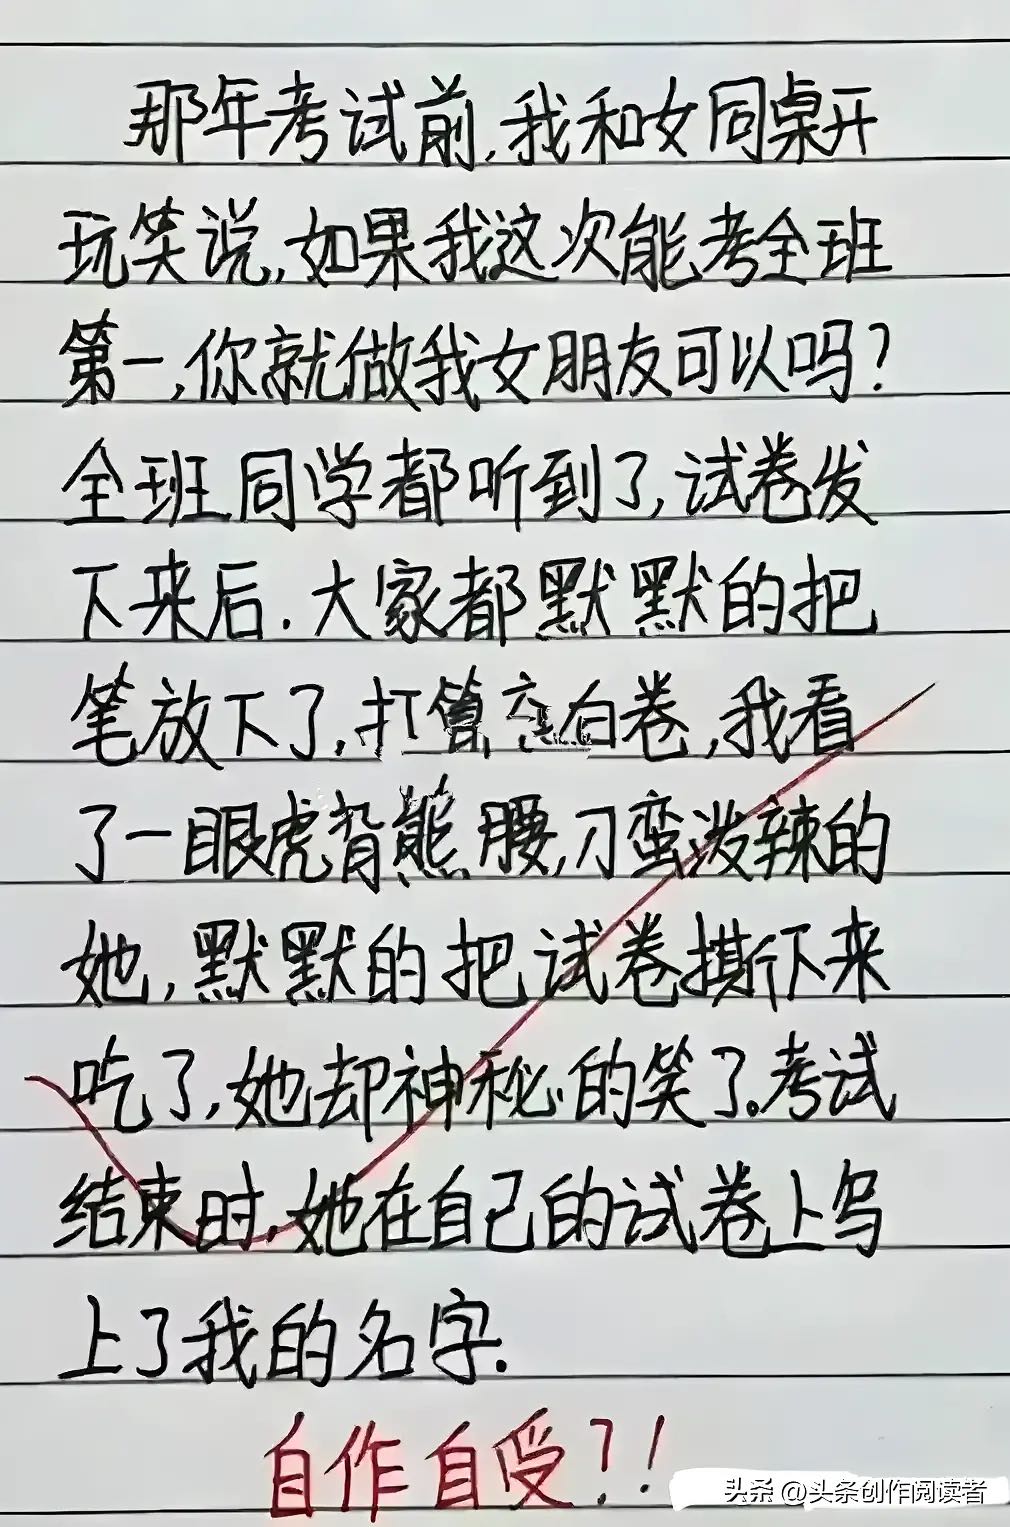 那年考试前,我和女同桌开
玩笑说,如果我这次能考全班
第一,你就做我女朋友可以吗?
全班同学都听到了,试卷发
下来后.大家都默默的把
笔放下了,打算交白卷,我看
了一眼虎背熊腰,刁蛮泼辣的
她,默默的把试卷撕下来
吃了,她却神秘的笑了。考试
结束时,她在自己的试卷上写
上了我的名字.
自作自受?!
头条@头条创作阅读者